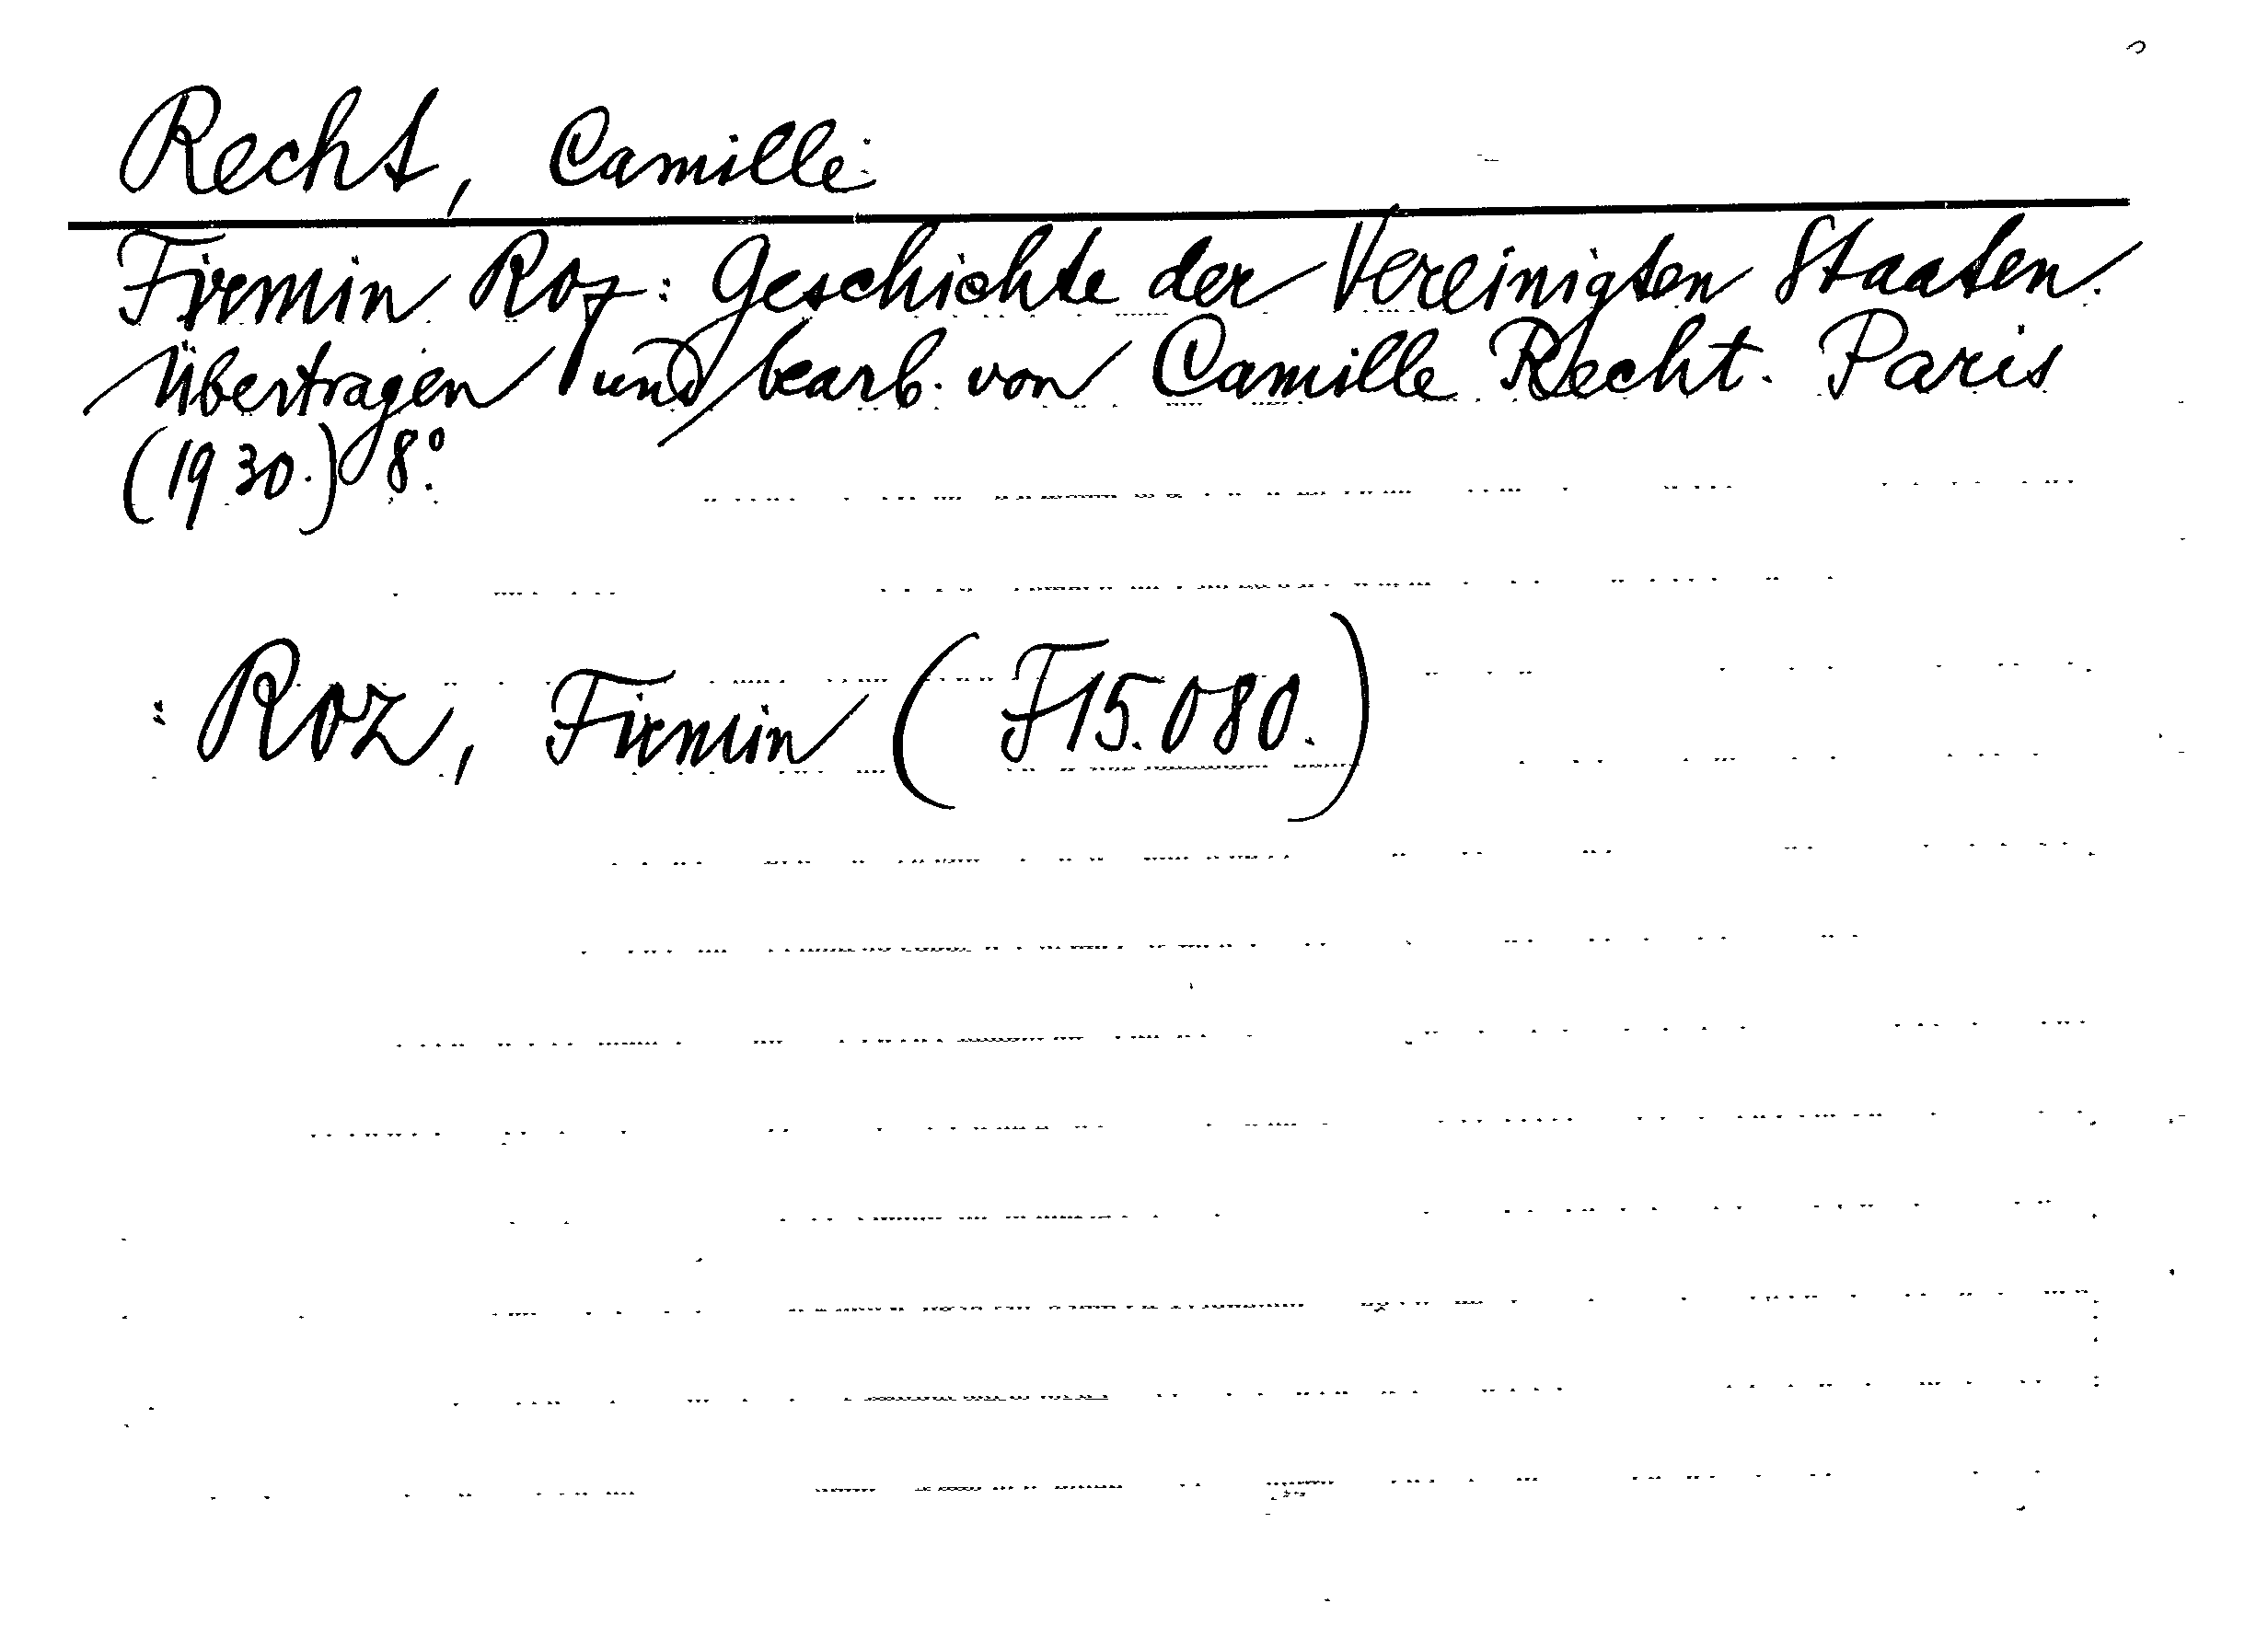 Recht, Camille
Firmin Roz: Geschichte der Vereinigten Staaten.
Übertragen und bearb. von Camille Recht. Paris
(1930.) 8°.
: Roz, Firmin (F15.080.)